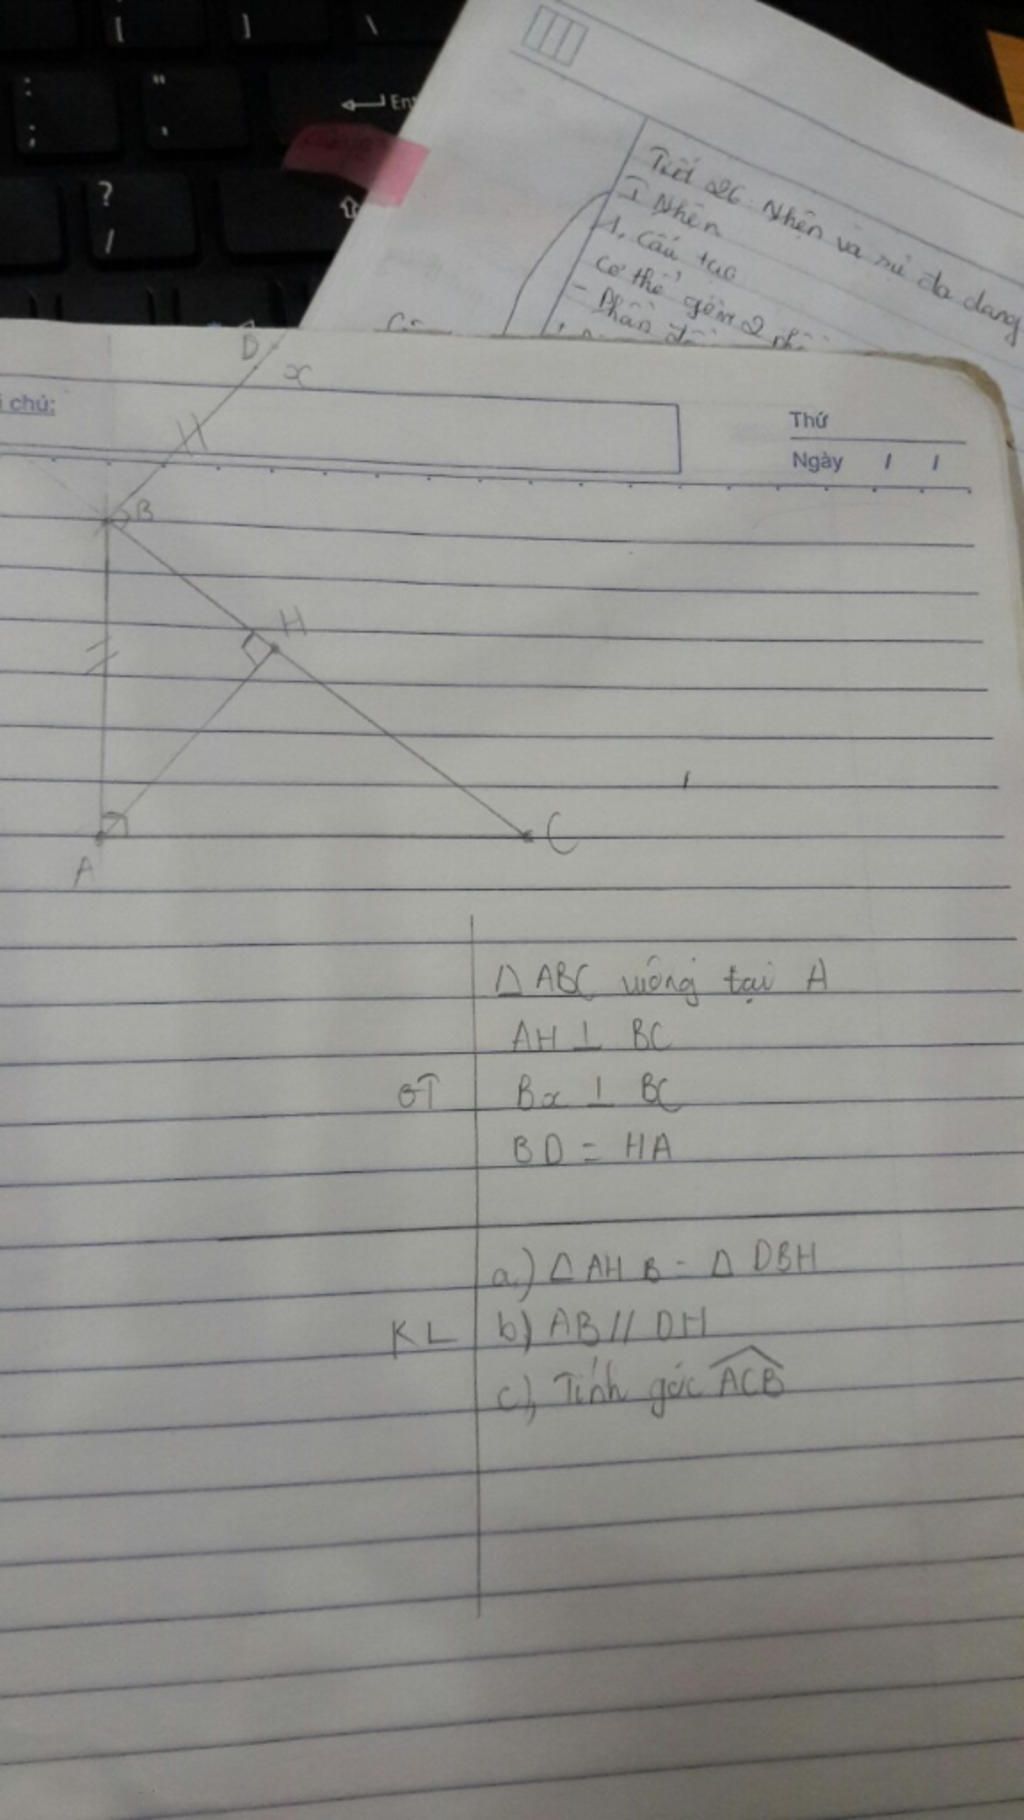 [
]
\
:
;
"
'
Ent
?
/
Tiết 26: Nhện và sự đa dạng
I Nhện
1. Cấu tạo
Cơ thể gồm 2
- Phần
D
x
i chú:
Thứ
Ngày / /
B
H
A
C
Δ ABC vuông tại A
AH ⊥ BC
GT
Bx ⊥ BC
BD = HA
a) Δ AHB = Δ DBH
KL
b) AB // DH
c), Tính góc ACB